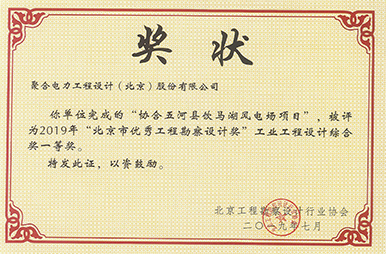 奖状
聚合电力工程设计（北京）股份有限公司
你单位完成的“协合五河县饮马湖风电场项目”，被评
为2019年“北京市优秀工程勘察设计奖”工业工程设计综合
奖一等奖。
特发此证，以资鼓励。
北京工程勘察设计行业协会
二〇一九年七月